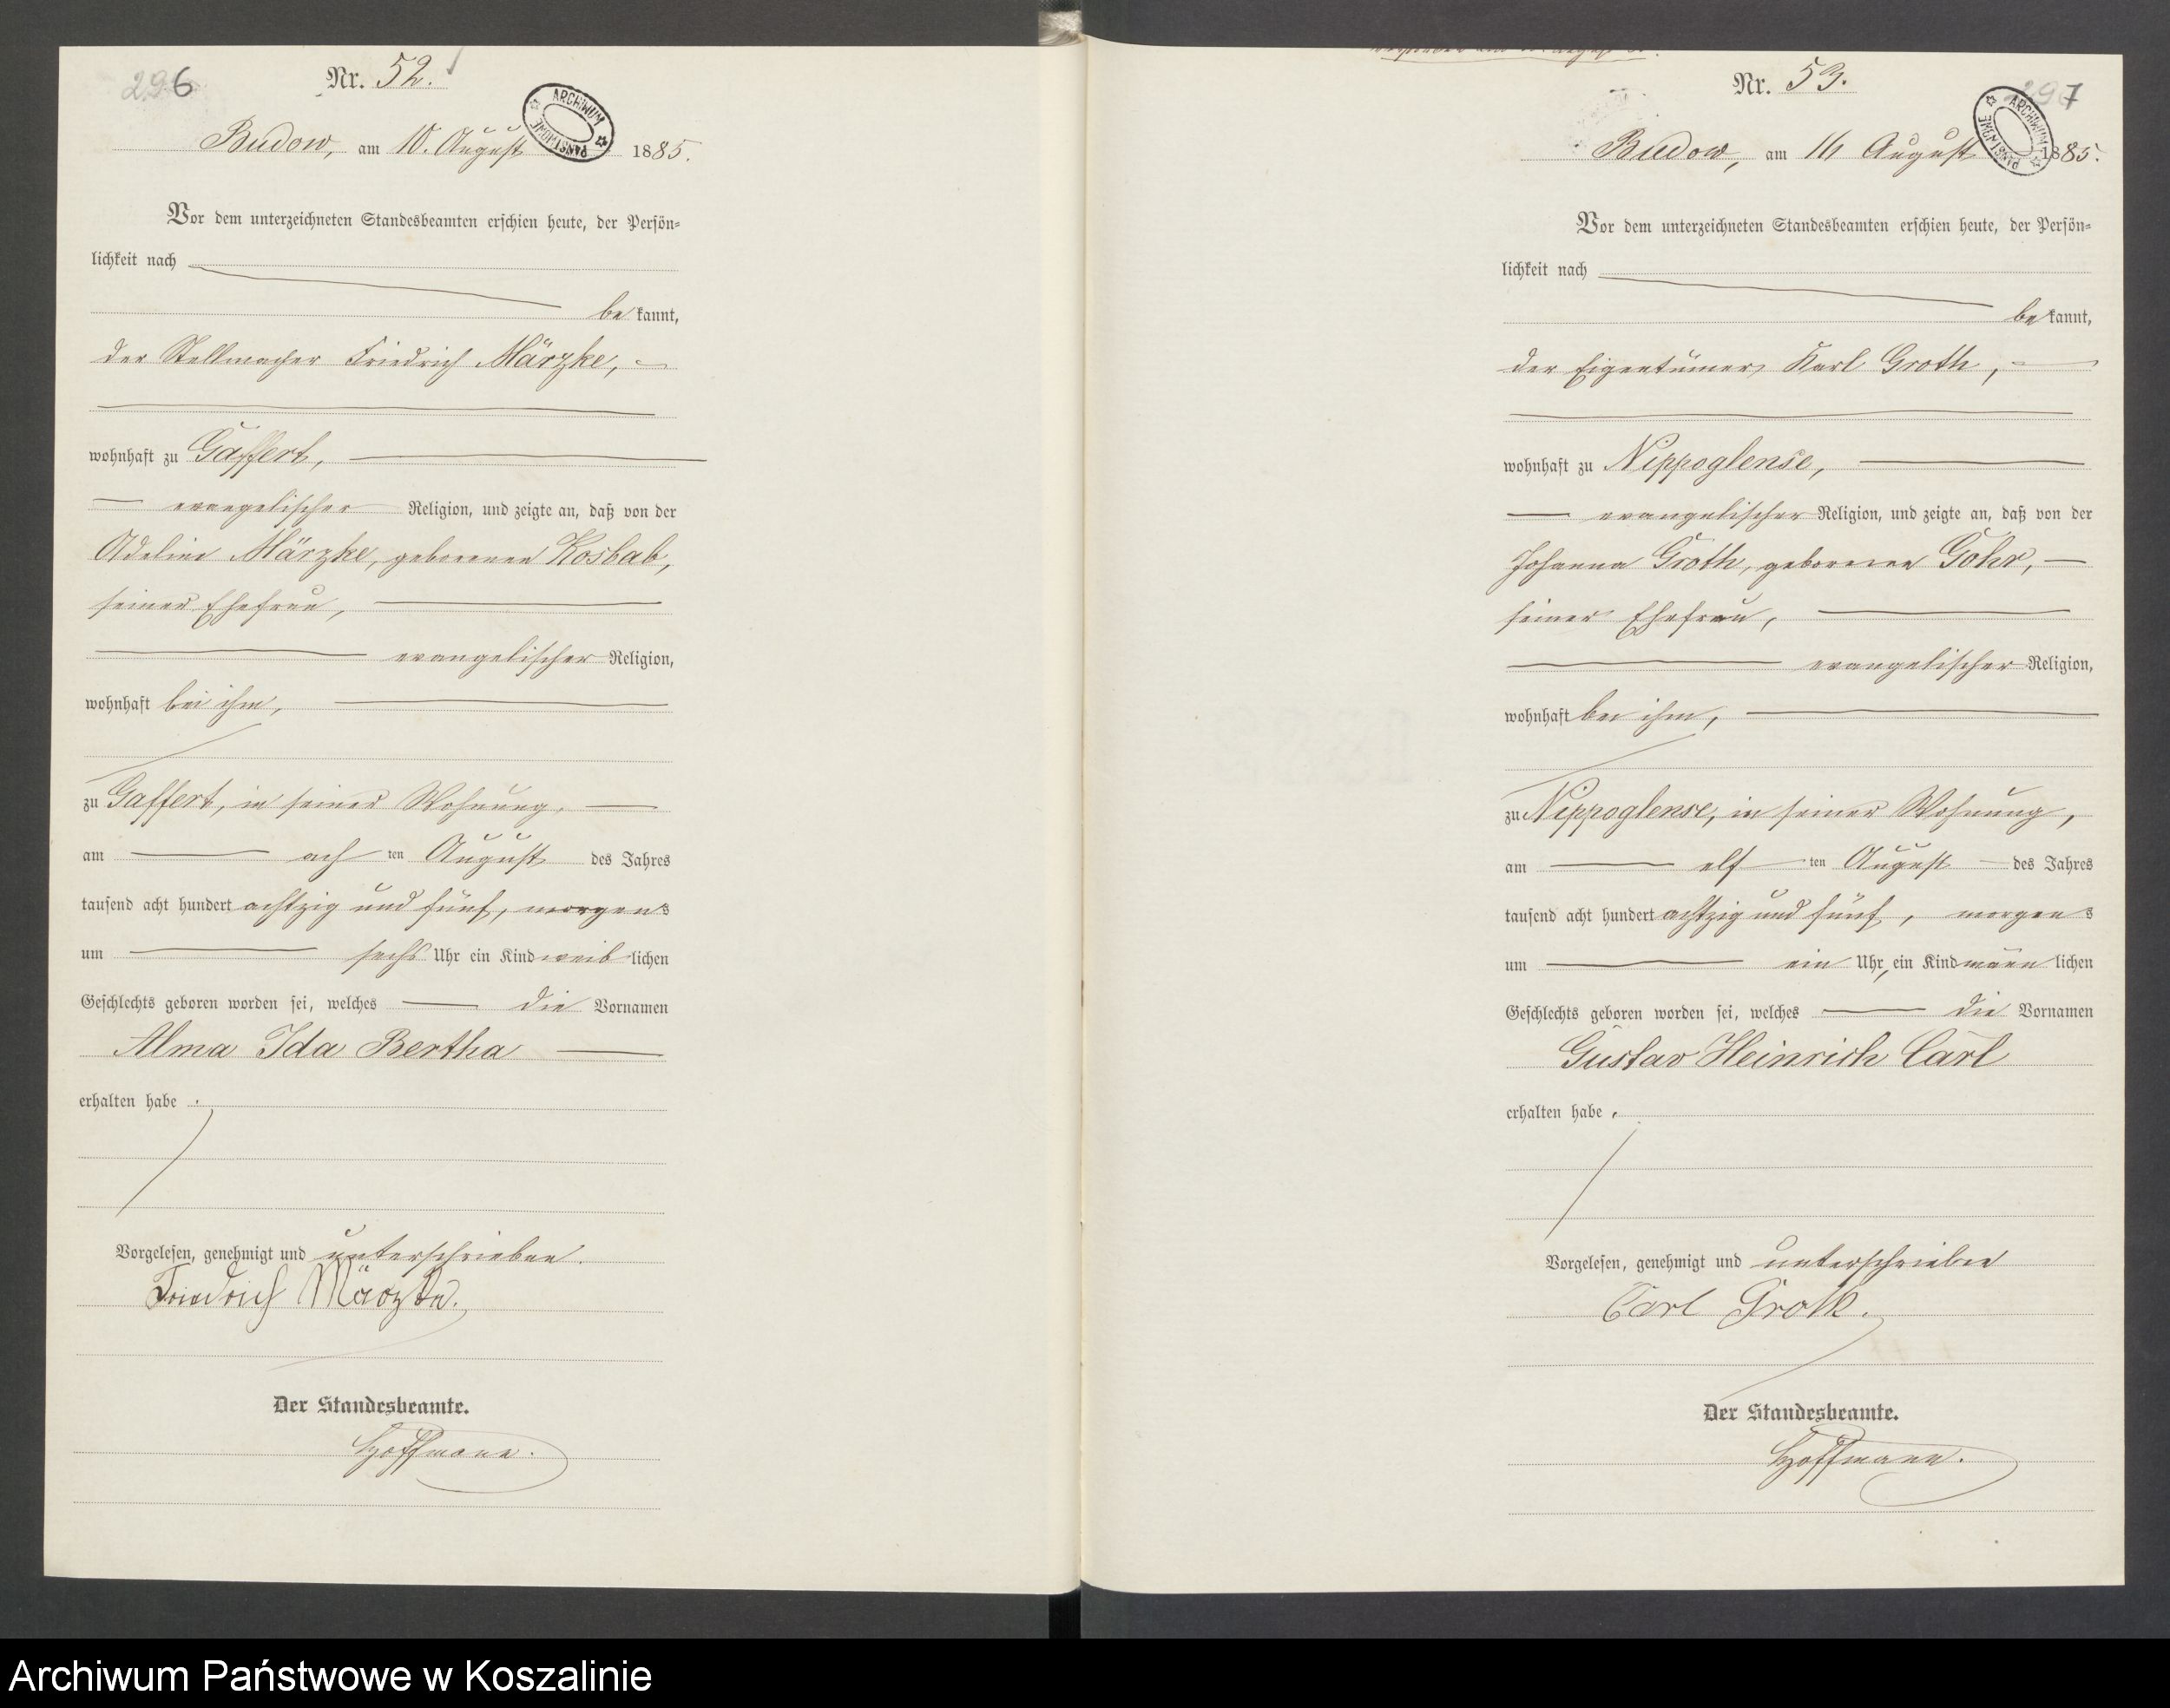 296
Nr. 52.
ARCHIWUM PAŃSTWOWE
Budow, am 10. August 1885.
Vor dem unterzeichneten Standesbeamten erschien heute, der Persön-
lichkeit nach
bekannt,
der Stellmacher Friedrich Märzke,
wohnhaft zu Gaffert,
evangelischer Religion, und zeigte an, daß von der
Adeline Märzke, geborenen Kosbab,
seiner Ehefrau,
evangelischer Religion,
wohnhaft bei ihm,
zu Gaffert, in seiner Wohnung,
am ach ten August des Jahres
tausend acht hundert achtzig und fünf, morgens
um sechs Uhr ein Kind weiblichen
Geschlechts geboren worden sei, welches die Vornamen
Alma Ida Bertha
erhalten habe.
Vorgelesen, genehmigt und unterschrieben.
Friedrich Märzke.
Der Standesbeamte.
Hoffmann.
297
Nr. 53.
ARCHIWUM PAŃSTWOWE
Budow, am August 1885.
Vor dem unterzeichneten Standesbeamten erschien heute, der Persön-
lichkeit nach
bekannt,
der Eigentümer Karl Groth,
wohnhaft zu Nippoglense,
evangelischer Religion, und zeigte an, daß von der
Johanna Groth, geborenen Gohr,
seiner Ehefrau,
evangelischer Religion,
wohnhaft bei ihm,
zu Nippoglense, in seiner Wohnung,
am elf ten August des Jahres
tausend acht hundert achtzig und fünf, morgens
um ein Uhr, ein Kind männlichen
Geschlechts geboren worden sei, welches die Vornamen
Gustav Heinrich Carl
erhalten habe.
Vorgelesen, genehmigt und unterschrieben
Carl Groth.
Der Standesbeamte.
Hoffmann.
Archiwum Państwowe w Koszalinie